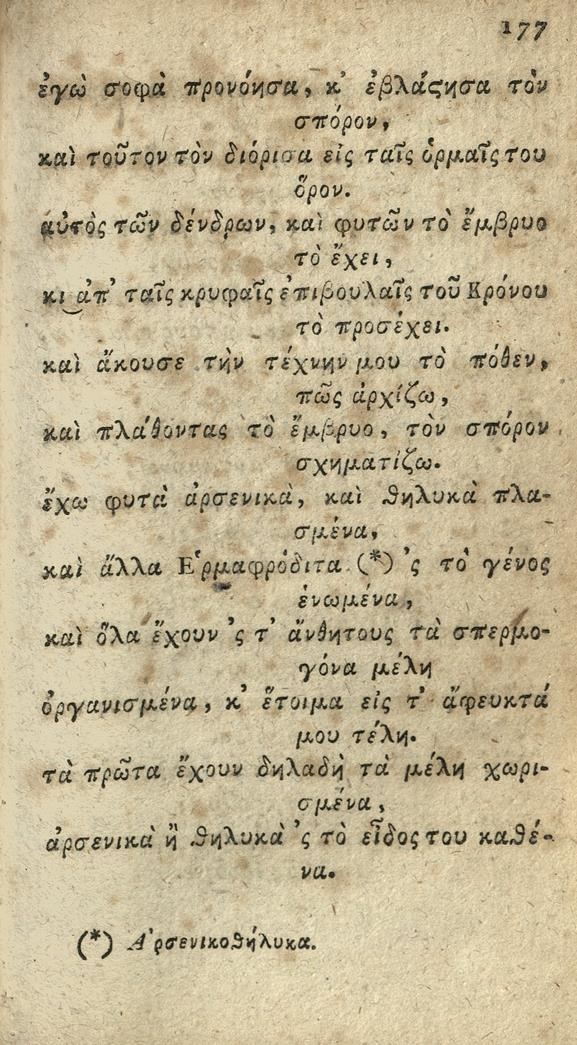 177
ἐγὼ σοφὰ προνόησα, κ' ἐβλάϛησα τὸν
σπόρον,
καὶ τοῦτον τὸν διόρισα εἰς ταῖς ὁρμαῖς του
ὅρον.
αὐτὸς τῶν δένδρων, καὶ φυτῶν τὸ ἔμβρυο
τὸ ἔχει,
κι ἀπ' ταῖς κρυφαῖς ἐπιβουλαῖς τοῦ Κρόνου
τὸ προσέχει.
καὶ ἄκουσε τὴν τέχνην μου τὸ πόθεν,
πῶς ἀρχίζω,
καὶ πλάθοντας τὸ ἔμβρυο, τὸν σπόρον
σχηματίζω.
ἔχω φυτὰ ἀρσενικὰ, καὶ θηλυκὰ πλα-
σμένα,
καὶ ἄλλα Ἑρμαφρόδιτα (*) 'ς τὸ γένος
ἑνωμένα,
καὶ ὅλα ἔχουν 'ς τ' ἄνθητους τὰ σπερμο-
γόνα μέλη
ὀργανισμένα, κ' ἕτοιμα εἰς τ' ἄφευκτά
μου τέλη.
τὰ πρῶτα ἔχουν δηλαδὴ τὰ μέλη χωρι-
σμένα,
ἀρσενικὰ ἢ θηλυκὰ 'ς τὸ εἶδος του καθέ-
να.
(*) Ἀρσενικοθήλυκα.